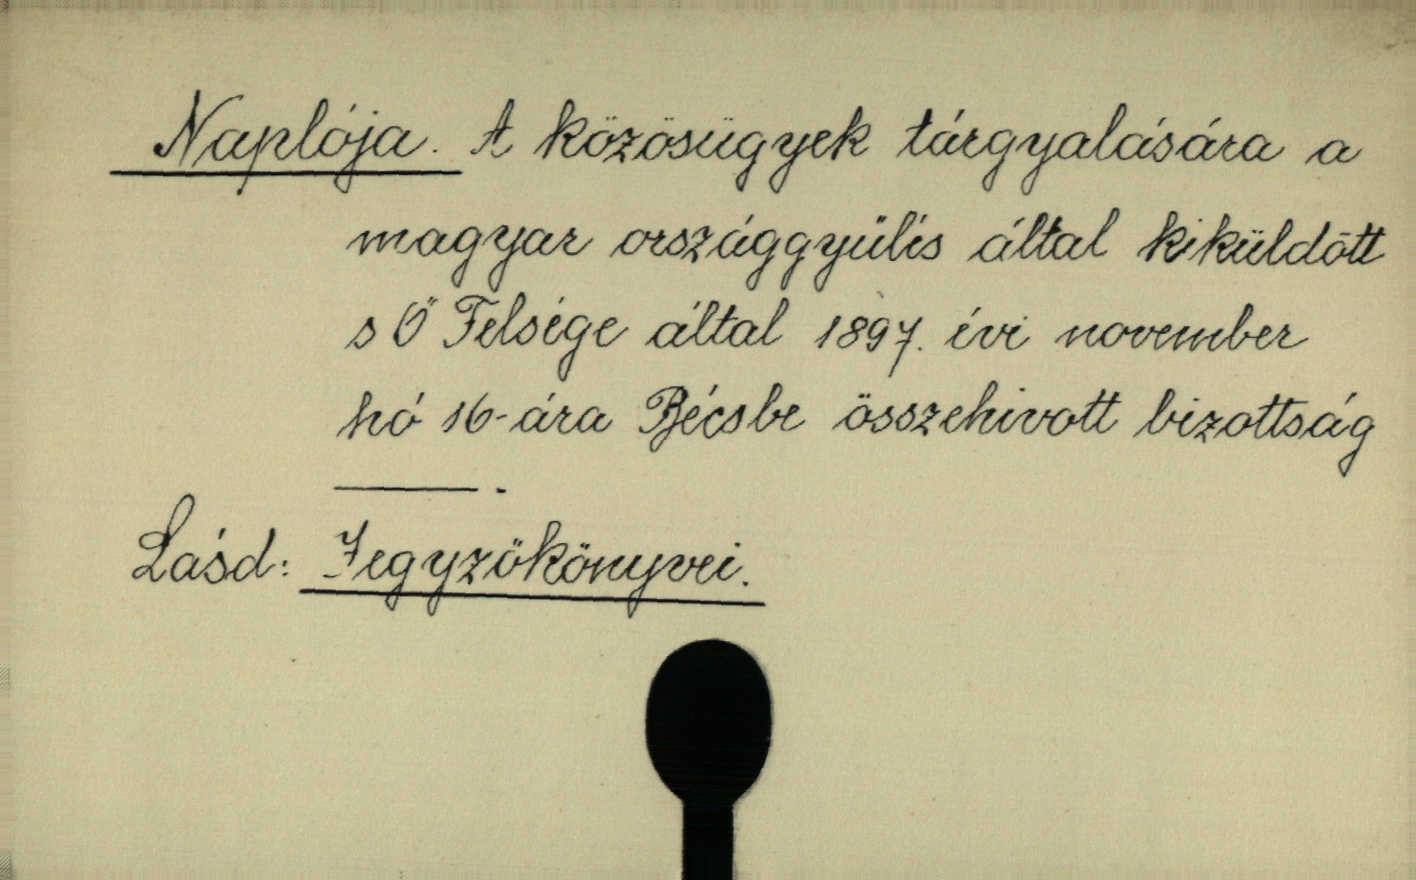 Naplója. A közösügyek tárgyalására a
magyar országgyülés által kiküldött
s Ő Felsége által 1897. évi november
hó 16-ára Bécsbe összehivott bizottság
———.
Lásd: Jegyzökönyvei.